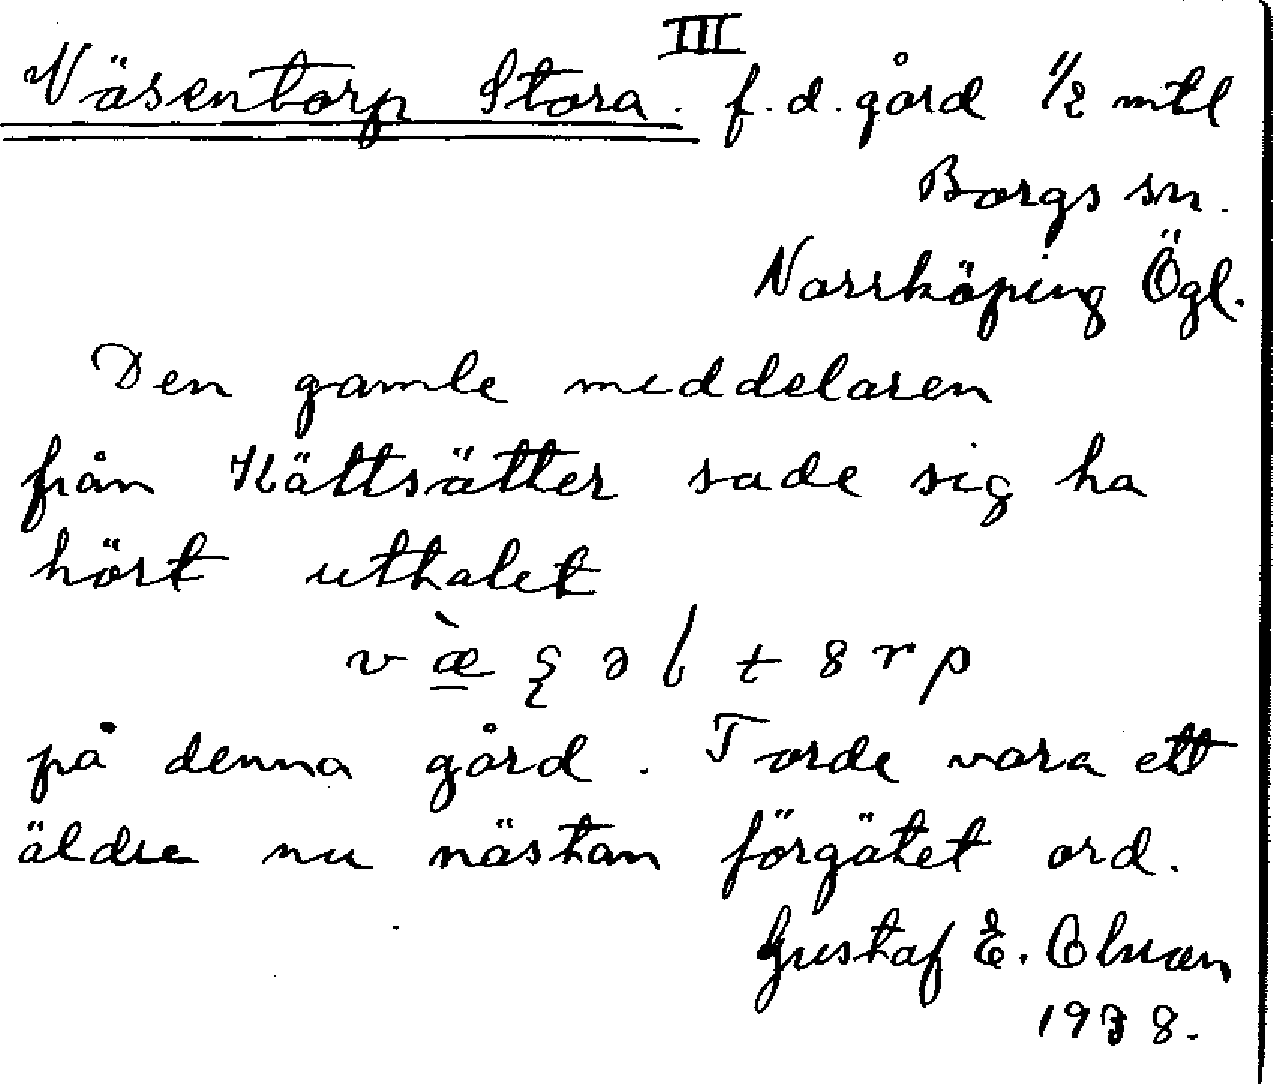 III
Väsentorp Stora. f.d. gård 1/2 mtl
Borgs sn.
Norrköping Ögl.
Den gamle meddelaren
från Kättsätter sade sig ha
hört uttalet
på denna gård. Torde vara ett
äldre nu nästan förgätet ord.
Gustaf E.